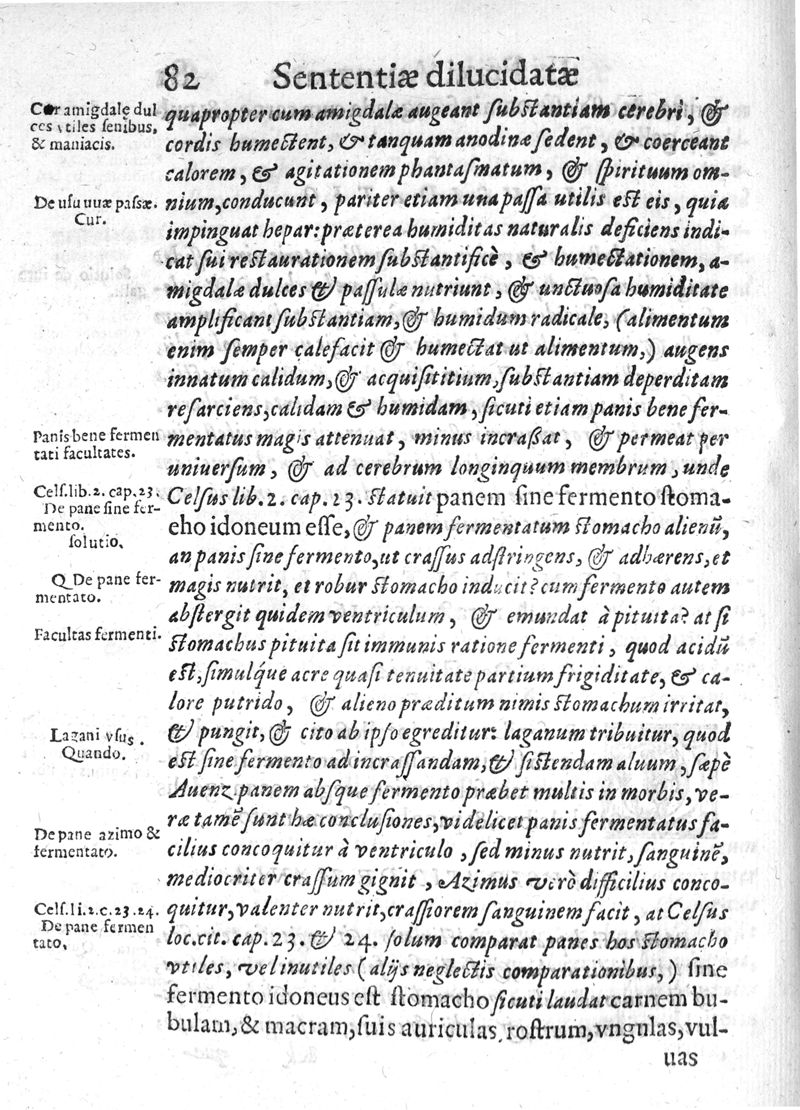 82 Sententiæ dilucidatæ
Cur amigdalę dul
ces vtiles senibus,
& maniacis.
quapropter cum amigdalæ augeant substantiam cerebri, &
cordis humectent, & tanquam anodinæ sedent, & coerceant
calorem, & agitationem phantasmatum, & spirituum om-
De usu uuæ passæ.
Cur.
nium, conducunt, pariter etiam una passa utilis est eis, quia
impinguat hepar: præterea humiditas naturalis deficiens indi-
cat sui restaurationem substantificè, & humectationem, a-
migdalæ dulces & passulæ nutriunt, & unctuosa humiditate
amplificant substantiam, & humidum radicale, (alimentum
enim semper calefacit & humectat ut alimentum,) augens
innatum calidum, & acquisititium, substantiam deperditam
resarciens, calidam & humidam, sicuti etiam panis bene fer-
Panis bene fermen
tati facultates.
mentatus magis attenuat, minus incrassat, & permeat per
uniuersum, & ad cerebrum longinquum membrum, unde
Cels. lib. 2. cap. 23.
De pane sine fer-
mento.
solutio.
Celsus lib. 2. cap. 23. statuit panem sine fermento stoma-
eho idoneum esse, & panem fermentatum stomacho alienũ,
an panis sine fermento, ut crassus adstringens, & adhærens, et
Q. De pane fer-
mentato.
magis nutrit, et robur stomacho inducit? cum fermento autem
abstergit quidem ventriculum, & emundat à pituita? at si
Facultas fermenti.
stomachus pituita sit immunis ratione fermenti, quod acidũ
est, simulq́ue acre quasi tenuitate partium frigiditate, & ca-
lore putrido, & alieno præditum nimis stomachum irritat,
Lazani vsus.
Quando.
& pungit, & cito ab ipso egreditur: laganum tribuitur, quod
est sine fermento ad incrassandam, & sistendam aluum, sæpè
Auenz. panem absque fermento præbet multis in morbis, ve-
ræ tamẽ sunt hæ conclusiones, videlicet panis fermentatus fa-
De pane azimo &
fermentato.
cilius concoquitur à ventriculo, sed minus nutrit, sanguinẽ,
mediocriter crassum gignit, Azimus verò difficilius conco-
Cels. li. 2. c. 23. 24.
De pane fermen
tato,
quitur, valenter nutrit, crassiorem sanguinem facit, at Celsus
loc. cit. cap. 23. & 24. solum comparat panes hos stomacho
vtiles, vel inutiles (alijs neglectis comparationibus,) sine
fermento idoneus est stomacho sicuti laudat carnem bu-
bulam, & macram, suis auriculas, rostrum, vngulas, vul-
uas